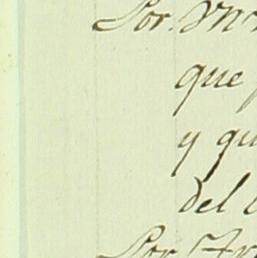 Por. M
que
y qu
del
Por Fr